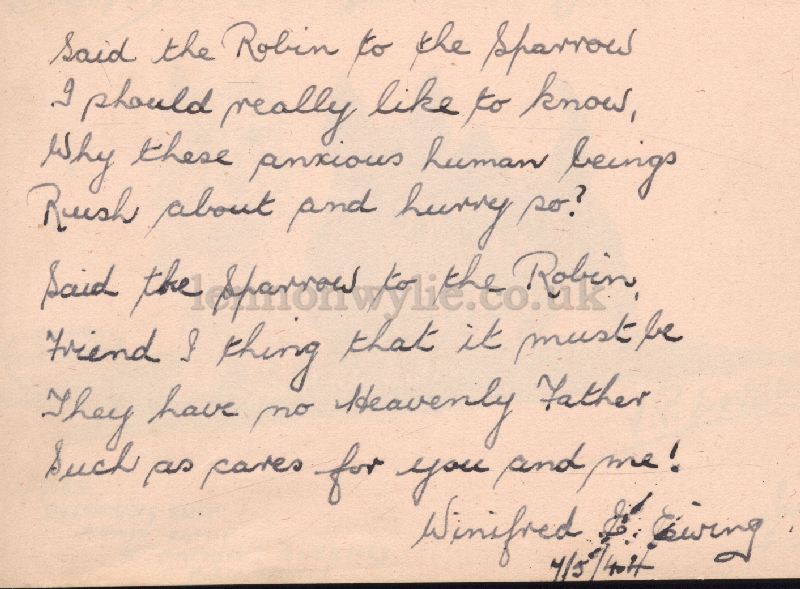 Said the Robin to the Sparrow
I should really like to know,
Why these anxious human beings
Rush about and hurry so?
Said the Sparrow to the Robin,
lennonwylie.co.uk
Friend I thing that it must be
They have no Heavenly Father
Such as cares for you and me!
Winifred E. Ewing
7/5/44